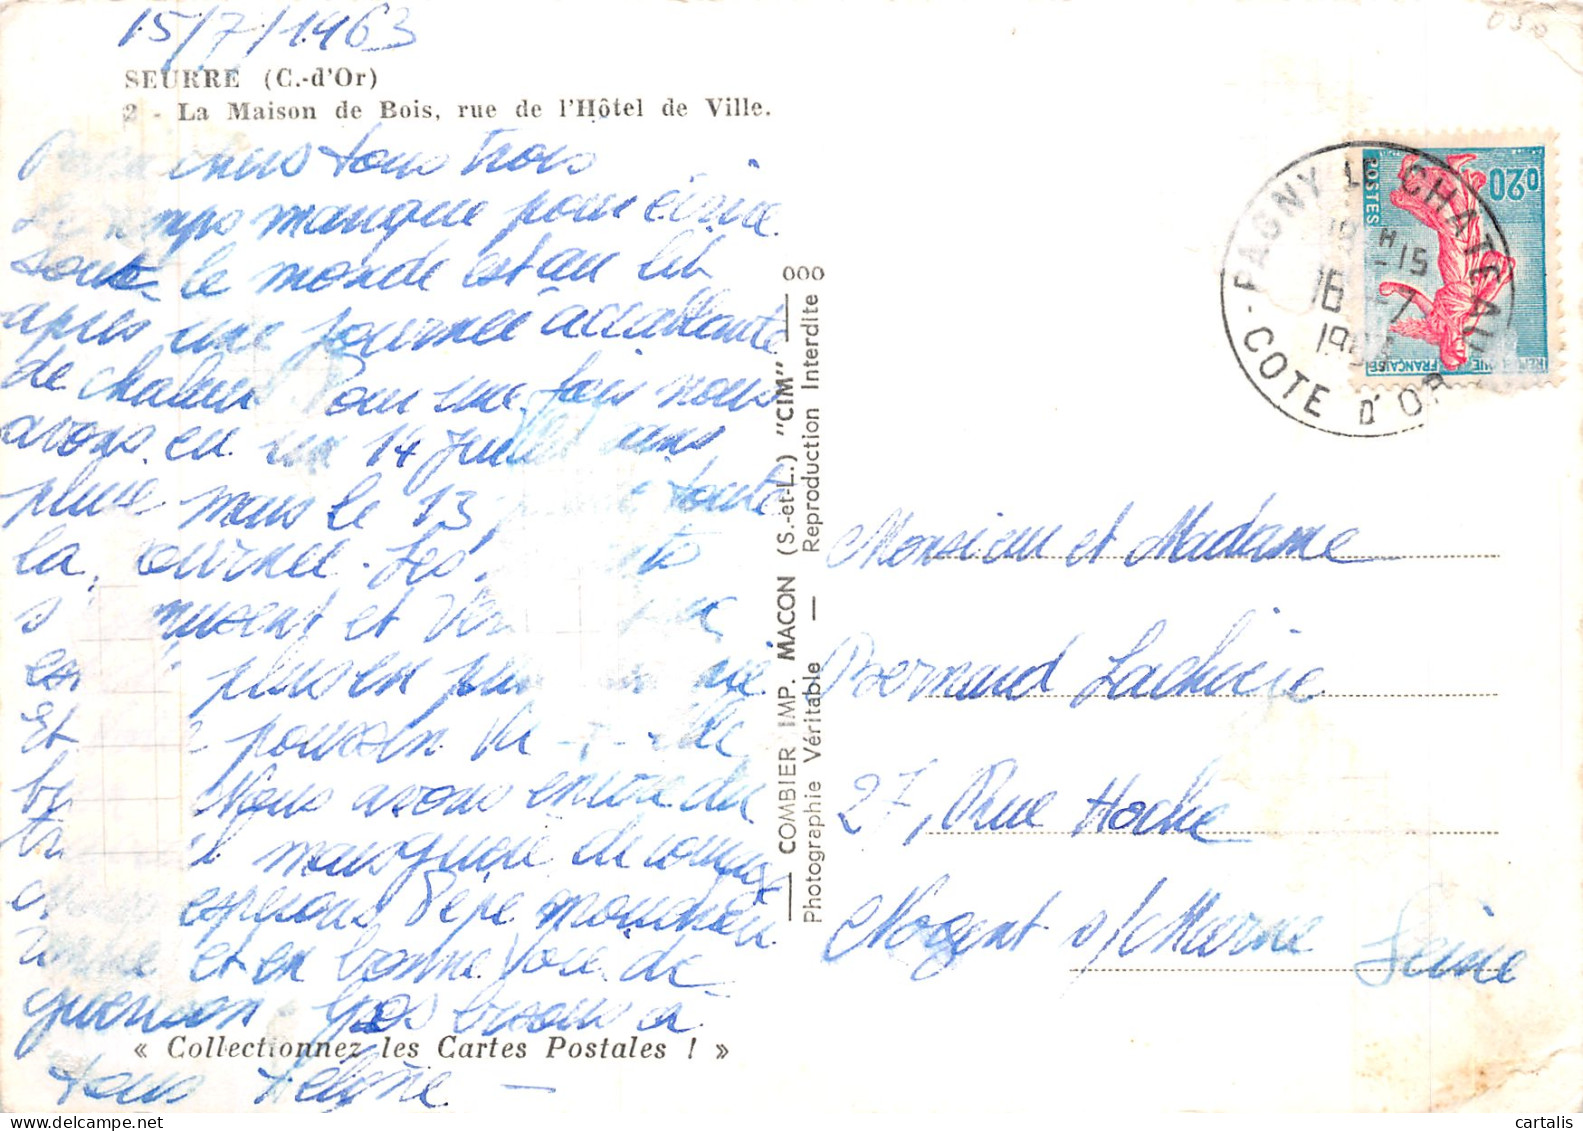 15/7/1963
SEURRE (C.-d'Or)
2 - La Maison de Bois, rue de l'Hôtel de Ville.
chers tous trois
Le temps manque pour écrire
le monde est au lit
après une journée accablante
de chaleur Pour une fois nous
avons eu un 14 Juillet sans
pluie mais le 13 toute
la journée. Les
s'amusent et
plus en plus
Et poussin
Nous avons encore du
travail mais guère de courage
espérons Pépé
et en bonne voie de
guérison. Gros baisers à
tous Hélène
« Collectionnez les Cartes Postales ! »
COMBIER IMP. MACON (S.-et-L.) "CIM"
Photographie Véritable — Reproduction Interdite
000
PAGNY LE CHATEAU
18H-15
16-7
1963
COTE D'OR
0,20
POSTES
REPUBLIQUE FRANÇAISE
Monsieur et Madame
Bernard
27, Rue Hoche
Nogent s/Marne Seine
030
cartalis